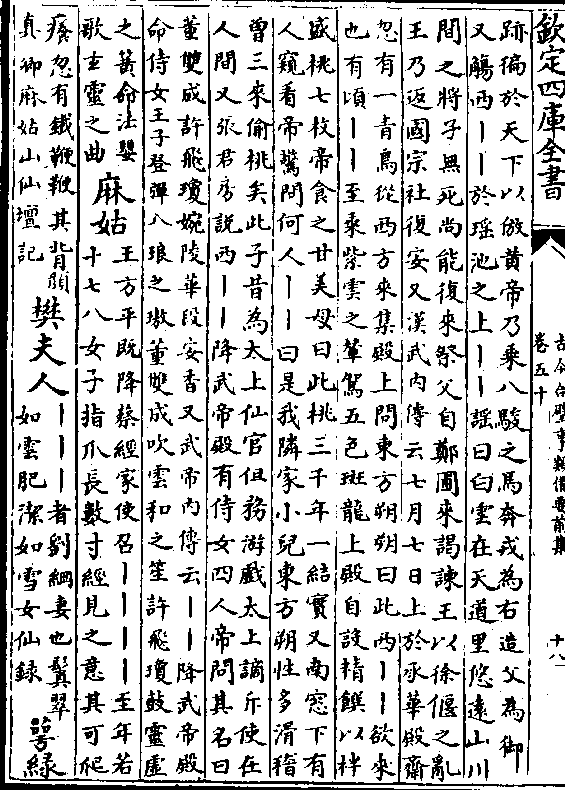 欽定四庫全書
古今合璧事類備要前集
卷五十
十八
跡徧於天下以倣黄帝乃乘八駿之馬奔戎為右造父為御
又觴西丨丨於瑶池之上丨丨謡曰白雲在天道里悠遠山川
間之將子無死尚能復來祭父自鄭圃來謁諫王以徐偃之亂
王乃返國宗社復安又漢武内傳云七月七日上於承華殿齋
忽有一青鳥從西方來集殿上問東方朔朔曰此西丨丨欲來
也有頃丨丨至乘紫雲之輦駕五色斑龍上殿自設精饌以柈
盛桃七枚帝食之甘美母曰此桃三千年一結實又南窓下有
人窺看帝驚問何人丨丨曰是我隣家小兒東方朔性多滑稽
曾三來偷桃矣此子昔為太上仙官但務游戲太上謫斥使在
人間又張君房説西丨丨降武帝殿有侍女四人帝問其名曰
董雙成許飛瓊婉陵華段安香又武帝内傳云丨丨降武帝殿
命侍女王子登彈八琅之璈董雙成吹雲和之笙許飛瓊鼓靈虚
之簧命法嬰
歌玄靈之曲
麻姑
王方平既降蔡經家使召丨丨丨丨至年若
十七八女子指爪長數寸經見之意其可爬
癢忽有鐵鞭鞭其背顔
真卿麻姑山仙壇記
樊夫人
丨丨丨者劉綱妻也鬢翠
如雲肥潔如雪女仙録
萼緑